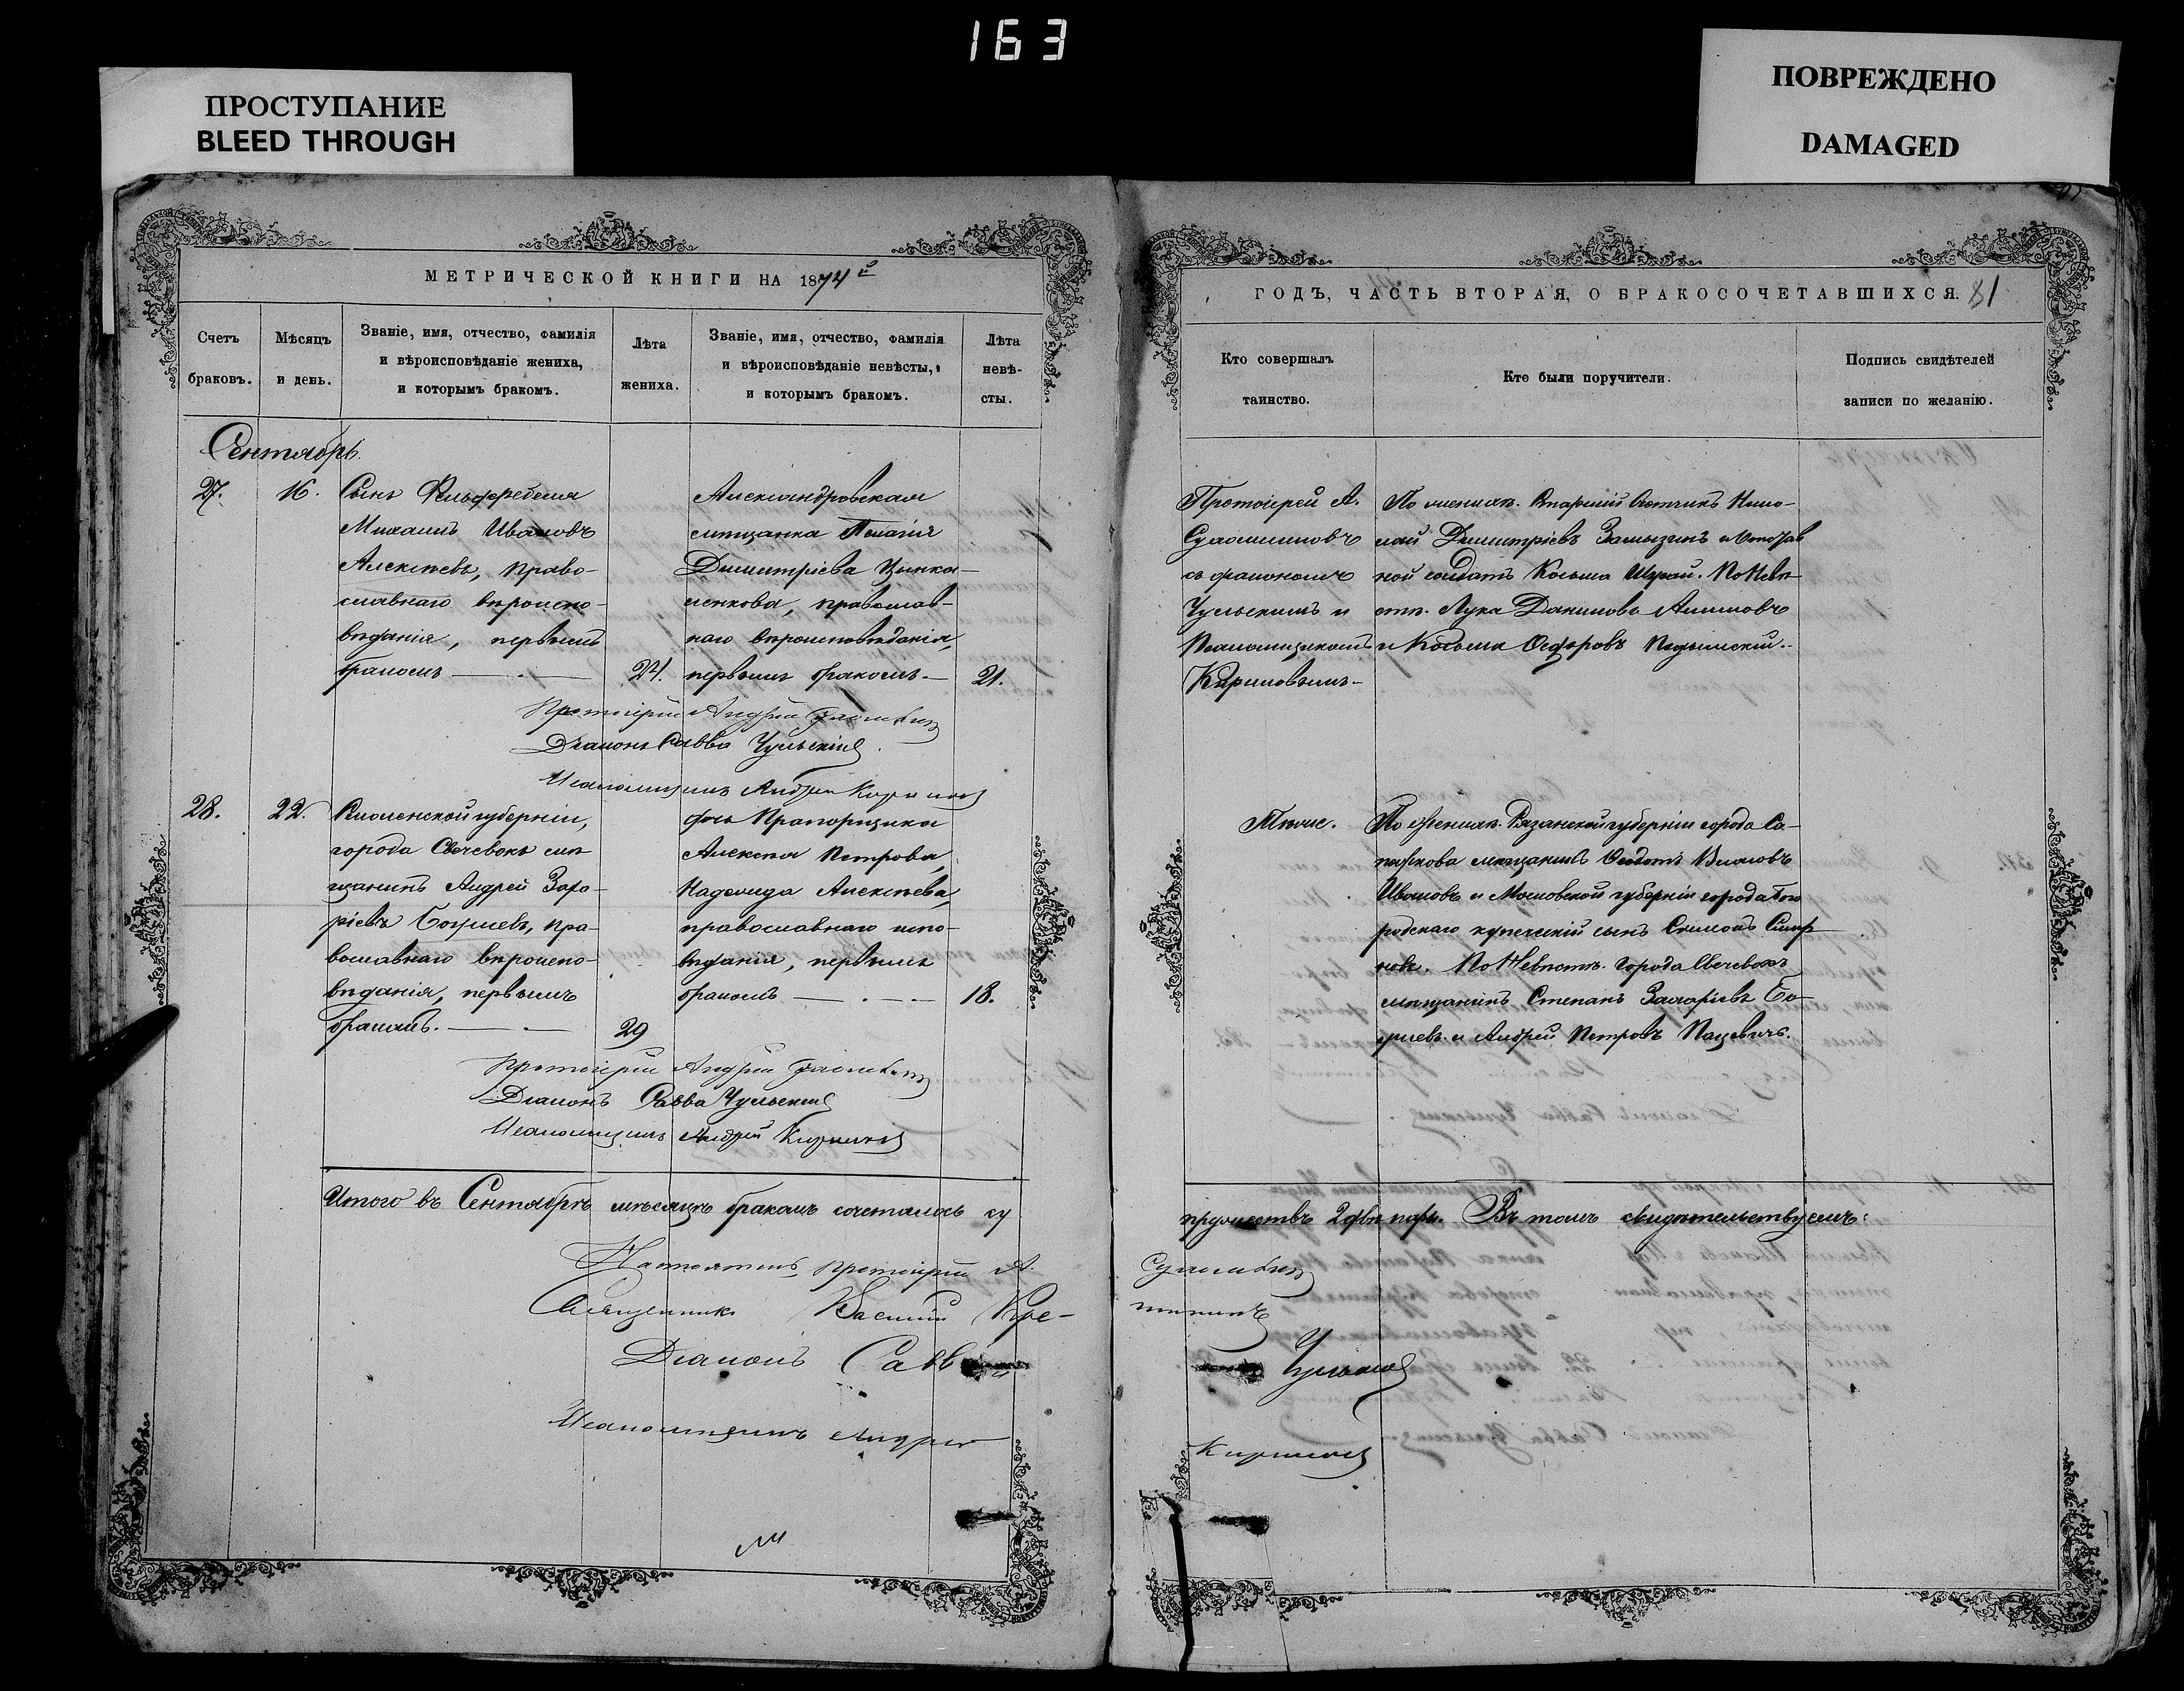 163
ПРОСТУПАНИЕ
BLEED THROUGH
ПОВРЕЖДЕНО
DAMAGED
МЕТРИЧЕСКОЙ КНИГИ НА 1874й
Счетъ
браковъ.
Мѣсяцъ
и день.
Званіе, имя, отчество, фамилія
и вѣроисповѣданіе жениха,
и которымъ бракомъ.
Лѣта
жениха.
Званіе, имя, отчество, фамилія
и вѣроисповѣданіе невѣсты,
и которымъ бракомъ.
Лѣта
невѣ-
сты.
Сентябрь
27. 16.
Сынъ Фельдфебеля
Михаилъ Ивановъ
Алексѣевъ, право-
славнаго вѣроиспо-
вѣданія, первымъ
бракомъ
24.
Александровская
мѣщанка Пелагія
Димитріева
православ-
наго вѣроисповѣданія,
первымъ бракомъ.
21.
Протоіерей Андрей
Діаконъ Савва Чульскій
Псаломщикъ Андрей Кирилловъ
28. 22.
Смоленской губерніи,
города Сычевокъ мѣ-
щанинъ Андрей Заха-
ріевъ православнаго вѣроиспо-
вѣданія, первымъ
бракомъ.
29
дочь Прапорщика
Алексѣя Петрова,
Надежда Алексѣева,
православнаго испо-
вѣданія, первымъ
бракомъ
18.
Протоіерей Андрей
Діаконъ Савва Чульскій
Псаломщикъ Андрей Кирилловъ
Итого въ Сентябрѣ мѣсяцѣ бракомъ сочеталось су
Настоятель протоіерей А.
Священникъ Василій Кре-
Діаконъ Савва
Псаломщикъ Андрей
ГОДЪ, ЧАСТЬ ВТОРАЯ, О БРАКОСОЧЕТАВШИХСЯ. 81
Кто совершалъ
таинство.
Кто были поручители.
Подпись свидѣтелей
записи по желанію.
Протоіерей А.
съ діакономъ
Чульскимъ и
Псаломщикомъ
Кирилловымъ
По женихѣ. Старшій Нико-
лай Димитріевъ и
солдатъ Косьма По Невѣ-
стѣ. Лука Даниловъ
и Косьма Ѳедоровъ
Тѣже.
По женихѣ. Рязанской губерніи города Са-
пожкова мѣщанинъ Ѳедотъ Власовъ
Ивановъ и Московской губерніи города Бого
родскаго купеческій сынъ Симеонъ Смир
новъ. По Невѣстѣ. города Сычевокъ
мѣщанинъ Степанъ Захаріевъ
и Андрей Петровъ Пацевичъ.
пружествъ 2 двѣ пары. Въ томъ свидѣтельствуемъ:
Чульскій
Кирилловъ